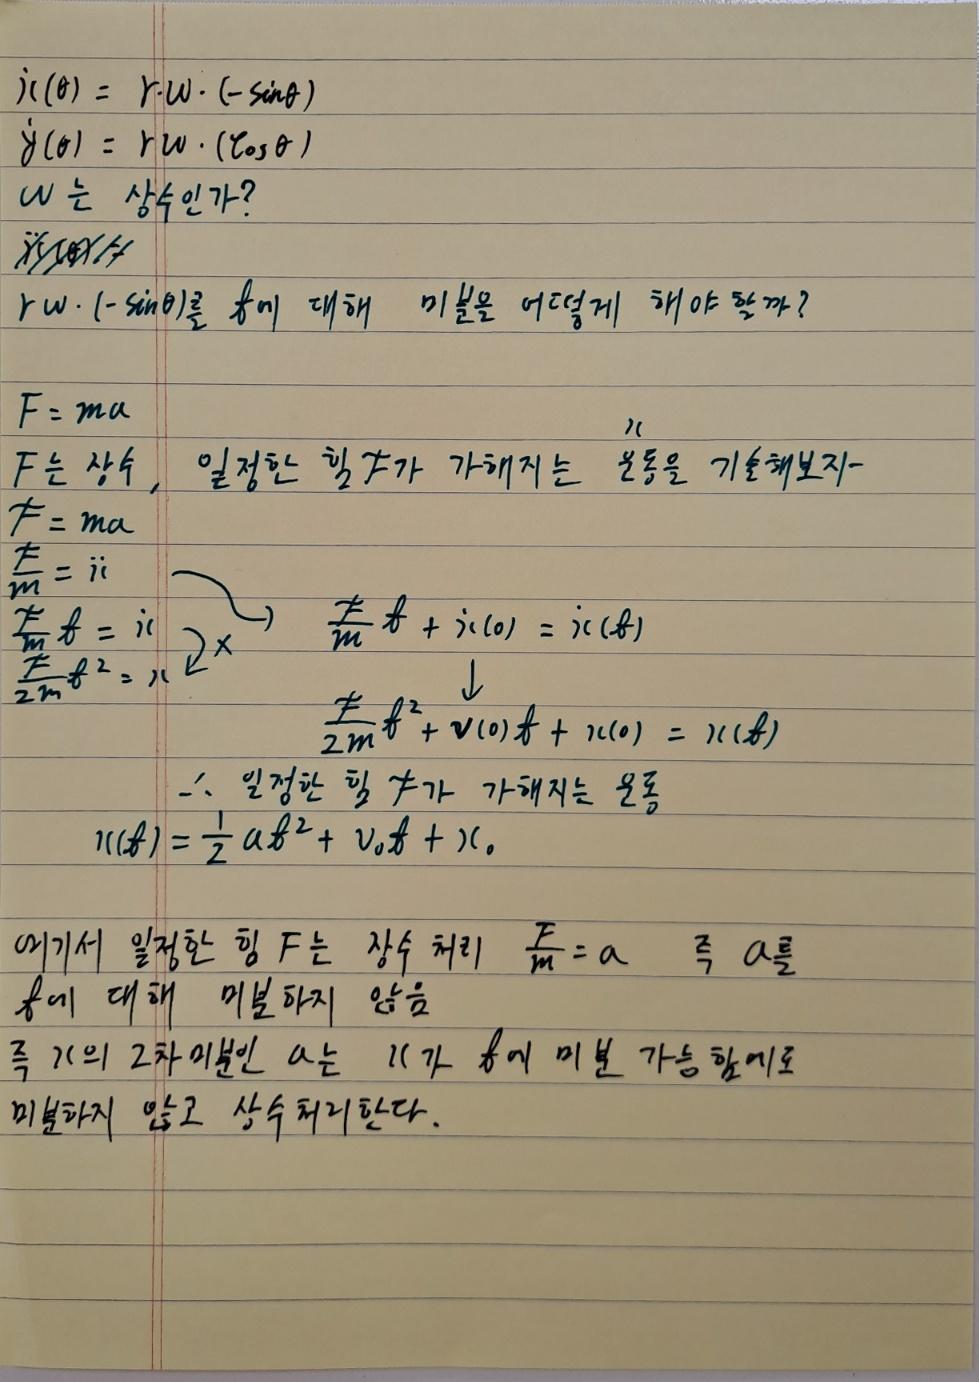 ẋ(θ) = r·w·(-sinθ)
ẏ(θ) = rw·(cosθ)
w는 상수인가?
rw·(-sinθ)를 t에 대해 미분을 어떻게 해야 할까?
F = ma
x
F는 상수, 일정한 힘 F가 가해지는 운동을 기술해보자-
F = ma
F/m = ẍ
F/m t = ẋ x F/m t + ẋ(0) = ẋ(t)
F/2m t² = x ↓
F/2m t² + v(0)t + x(0) = x(t)
∴ 일정한 힘 F가 가해지는 운동
x(t) = 1/2 at² + v₀t + x₀
여기서 일정한 힘 F는 상수 처리 F/m = a 즉 a를
t에 대해 미분하지 않음
즉 x의 2차미분인 a는 x가 t에 미분 가능함에도
미분하지 않고 상수처리한다.